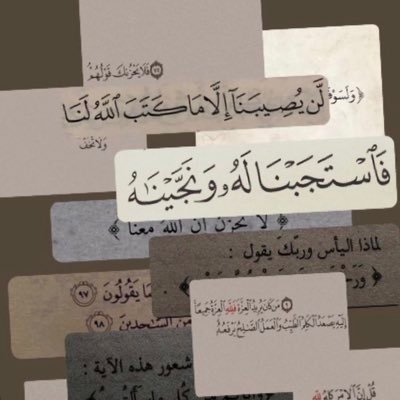 فَلَا يَحْزُنكَ قَوْلُهُمْ
﴿ وَلَسَوْفَ
لَّن يُصِيبَنَآ إِلَّا مَا كَتَبَ ٱللَّهُ لَنَا
وَلَا تَخَفْ
فَٱسْتَجَبْنَا لَهُۥ وَنَجَّيْنَٰهُ
لَا تَحْزَنْ إِنَّ اللَّهَ مَعَنَا ﴾
لماذا اليأس وربّكَ يقول :
يَقُولُونَ ٩٧
مِّنَ ٱلسَّٰجِدِينَ ٩٨
مَن كَانَ يُرِيدُ ٱلْعِزَّةَ فَلِلَّهِ ٱلْعِزَّةُ جَمِيعًا
إِلَيْهِ يَصْعَدُ ٱلْكَلِمُ ٱلطَّيِّبُ وَٱلْعَمَلُ ٱلصَّٰلِحُ يَرْفَعُهُۥ
شعور هذه الآية :
قُلْ إِنَّ ٱلْأَمْرَ كُلَّهُۥ لِلَّهِ